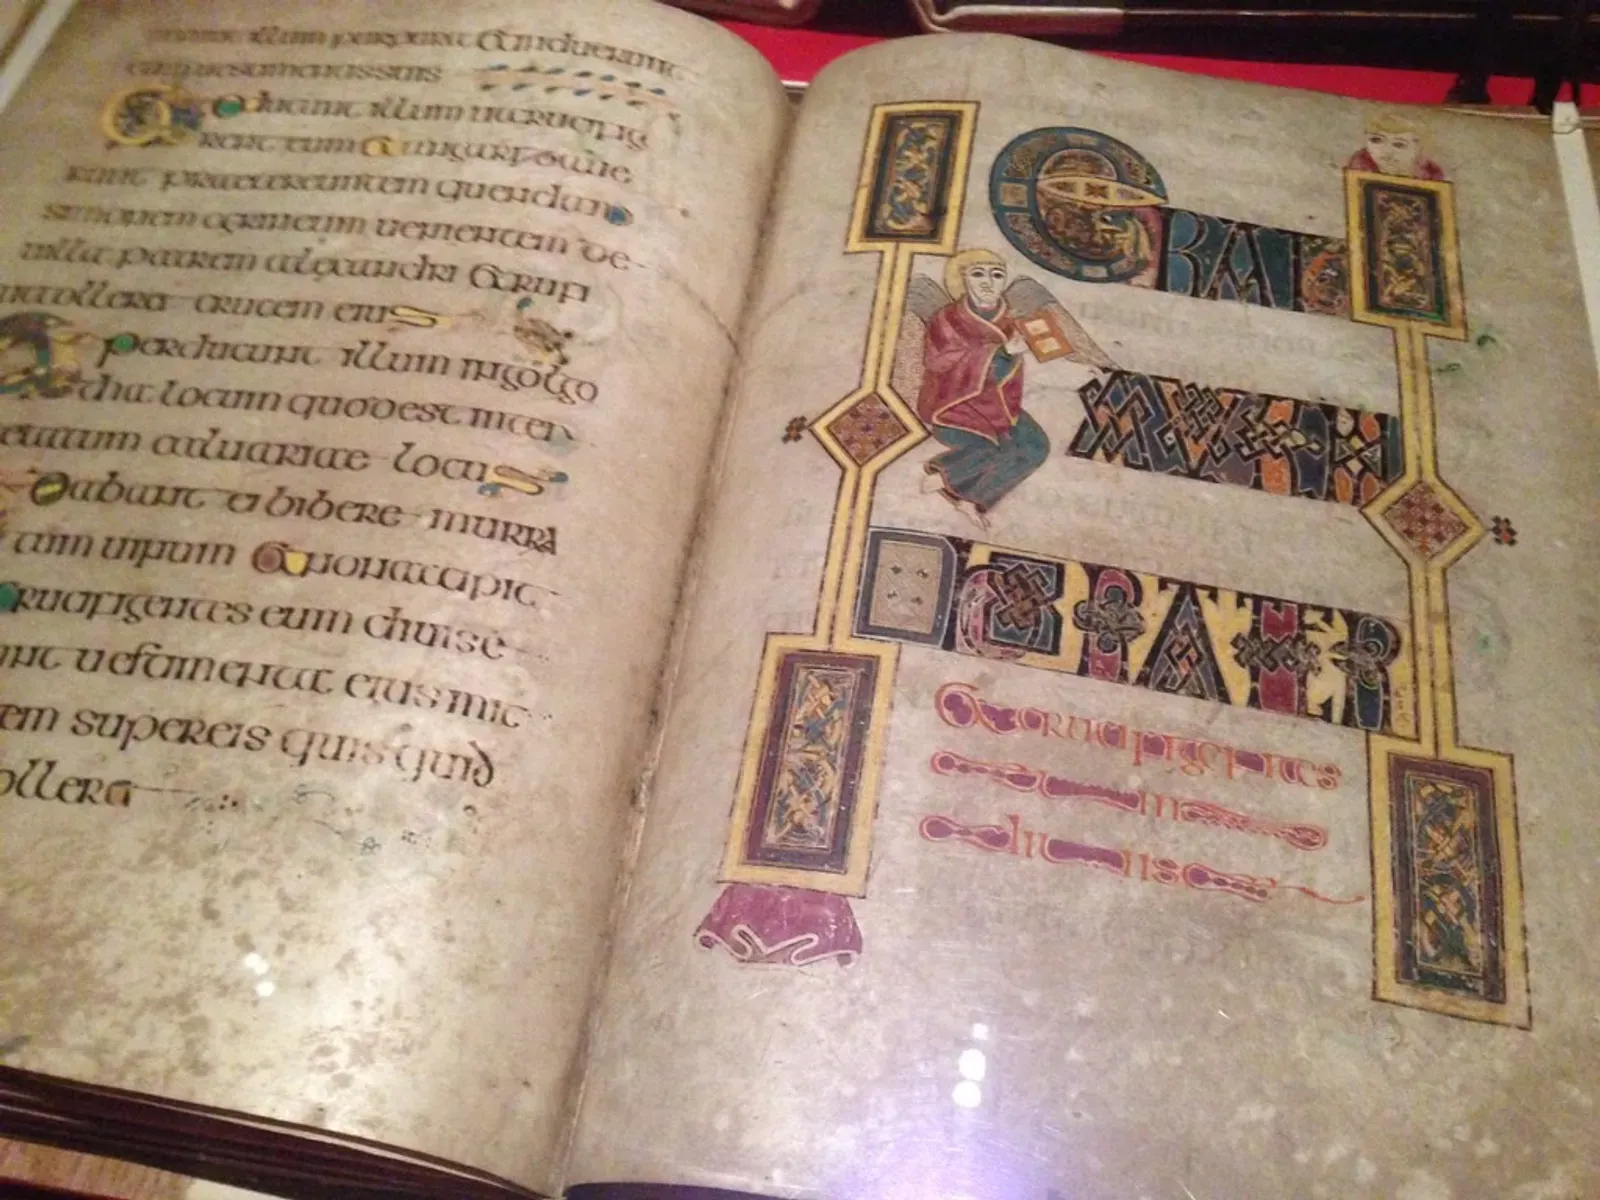 illum purpura & induerunt
eum uestimentis suis
Et educunt illum ut crucifig
erent eum & angarizaue
runt praetereuntem quendam
simonem cirineum uenientem de
uilla patrem alexandri & rufi
ut tolleret crucem eius
Et perducunt illum ingolgo
tha locum quod est inter
caluariae locus
Et dabant ei bibere murra
tum uinum & non accipit
crucifigentes eum diuise
runt uestimenta eius mit
tem super eis quis quid
tolleret
ERAT
& crucifigentes